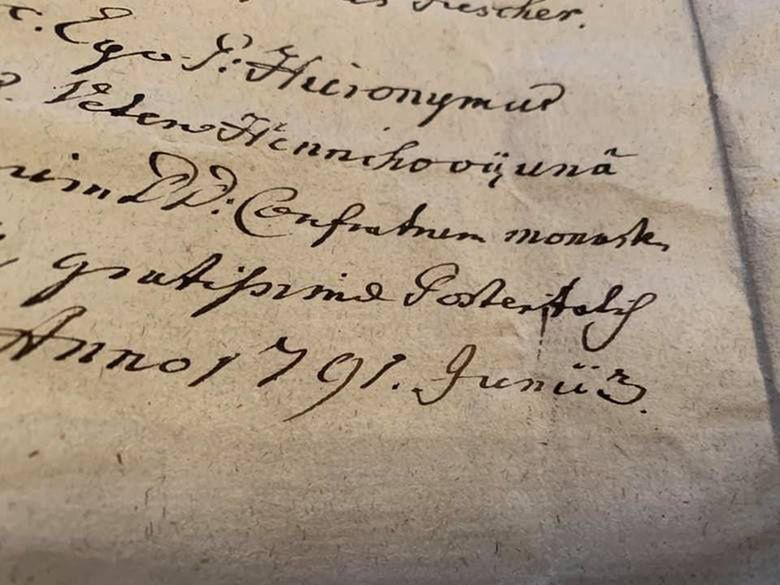 Fiescher.
Ego P: Hieronymus
Veteno Hennrichovij unã
DD: Confratrum monast
gratissimæ Posteritatis
Anno 1791. Junii 3.